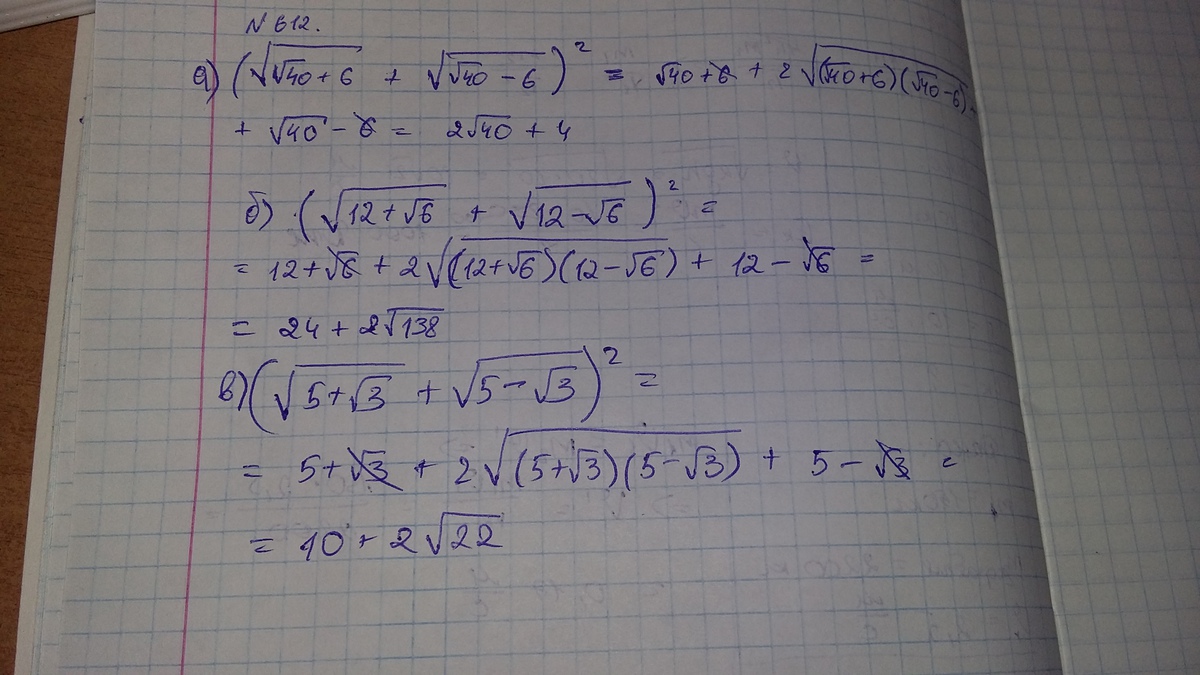 №612.
а) (√(√40+6) + √(√40-6))² = √40+6 + 2√((√40+6)(√40-6)) +
+ √40 - 6 = 2√40 + 4
б) (√(12+√6) + √(12-√6))² =
= 12+√6 + 2√((12+√6)(12-√6)) + 12 - √6 =
= 24 + 2√138
в) (√(5+√3) + √(5-√3))² =
= 5+√3 + 2√((5+√3)(5-√3)) + 5 - √3 =
= 10 + 2√22